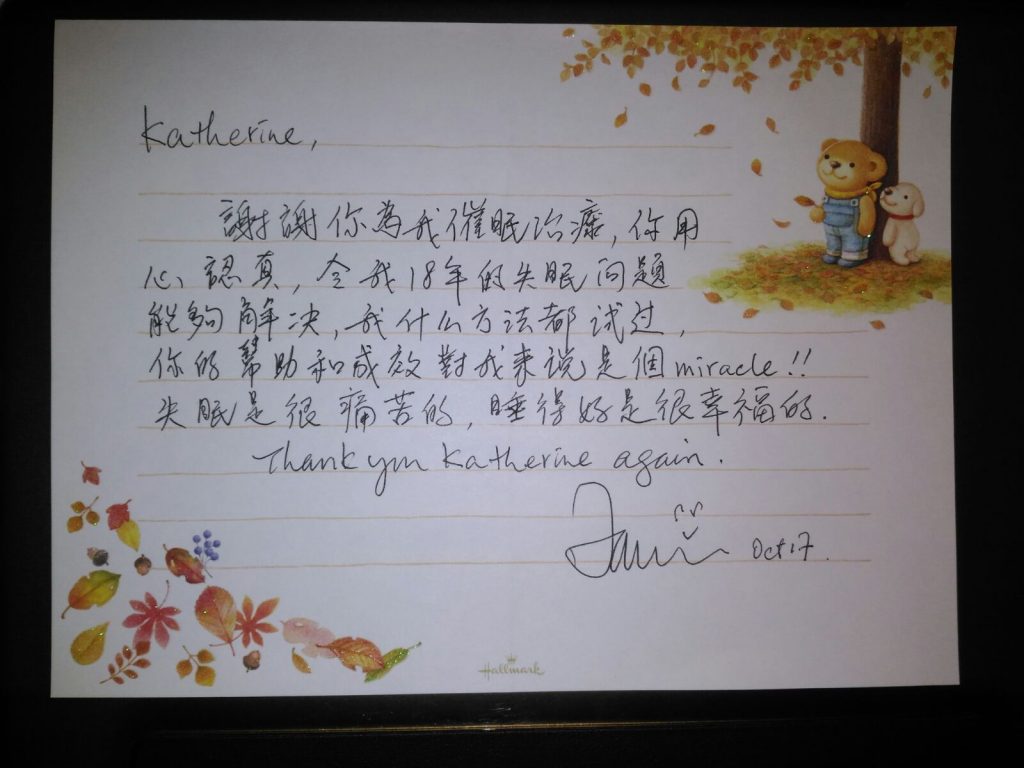 Katherine,
謝謝你為我催眠治療,你用
心認真,令我18年的失眠问题
能夠解决,我什么方法都试过,
你的幫助和成效對我来说是個miracle!!
失眠是很痛苦的,睡得好是很幸福的.
Thank you Katherine again.
Oct 17.
Hallmark